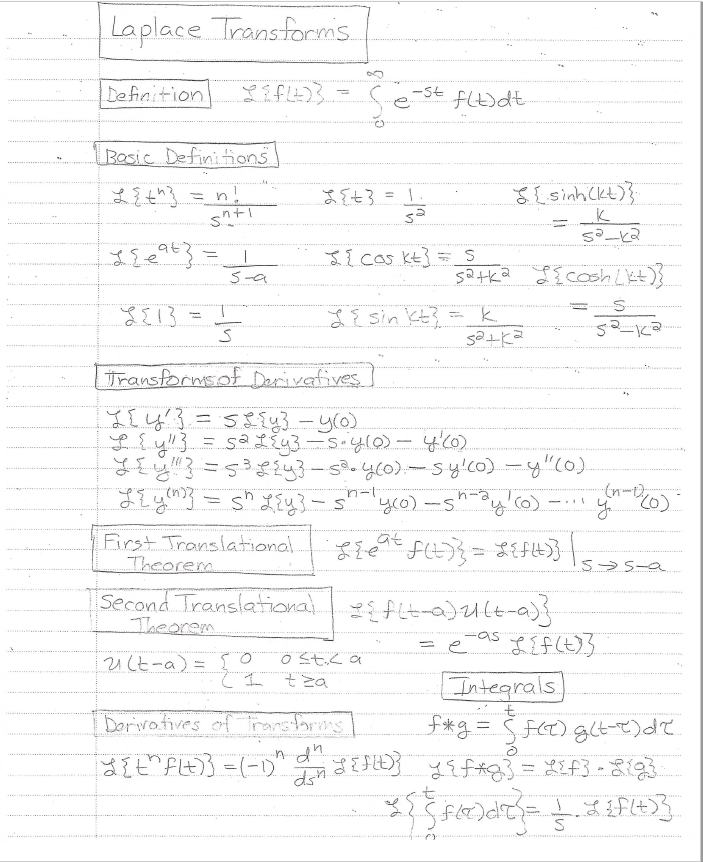 Laplace Transforms
Definition ℒ{f(t)} = ∫₀^∞ e^-st f(t)dt
Basic Definitions
ℒ{tⁿ} = n!/s^n+1 ℒ{t} = 1/s² ℒ{sinh(kt)} = k/s²-k²
ℒ{e^at} = 1/s-a ℒ{cos kt} = s/s²+k² ℒ{cosh(kt)} = s/s²-k²
ℒ{1} = 1/s ℒ{sin kt} = k/s²+k²
Transforms of Derivatives
ℒ{y'} = sℒ{y} - y(0)
ℒ{y''} = s²ℒ{y} - s·y(0) - y'(0)
ℒ{y'''} = s³ℒ{y} - s²·y(0) - sy'(0) - y''(0)
ℒ{y^(n)} = sⁿℒ{y} - s^n-1 y(0) - s^n-2 y'(0) - ... y^(n-1)(0)
First Translational
Theorem
ℒ{e^at f(t)} = ℒ{f(t)}|s→s-a
Second Translational
Theorem
ℒ{f(t-a)𝒰(t-a)}
= e^-as ℒ{f(t)}
𝒰(t-a) = { 0 0≤t<a
{ 1 t≥a
Integrals
f*g = ∫₀^t f(τ) g(t-τ)dτ
Derivatives of Transforms
ℒ{tⁿf(t)} = (-1)ⁿ dⁿ/dsⁿ ℒ{f(t)}
ℒ{f*g} = ℒ{f}·ℒ{g}
ℒ{∫₀^t f(τ)dτ} = 1/s · ℒ{f(t)}